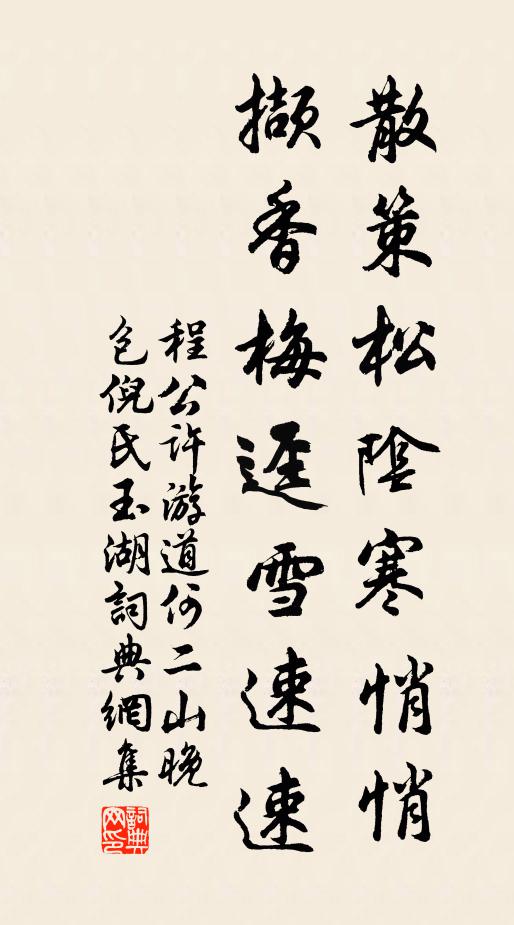 散策松陰寒悄悄
擷香梅逕雪速速
程公許游道何二山晚
包倪氏玉湖詞典網集
詞典网印